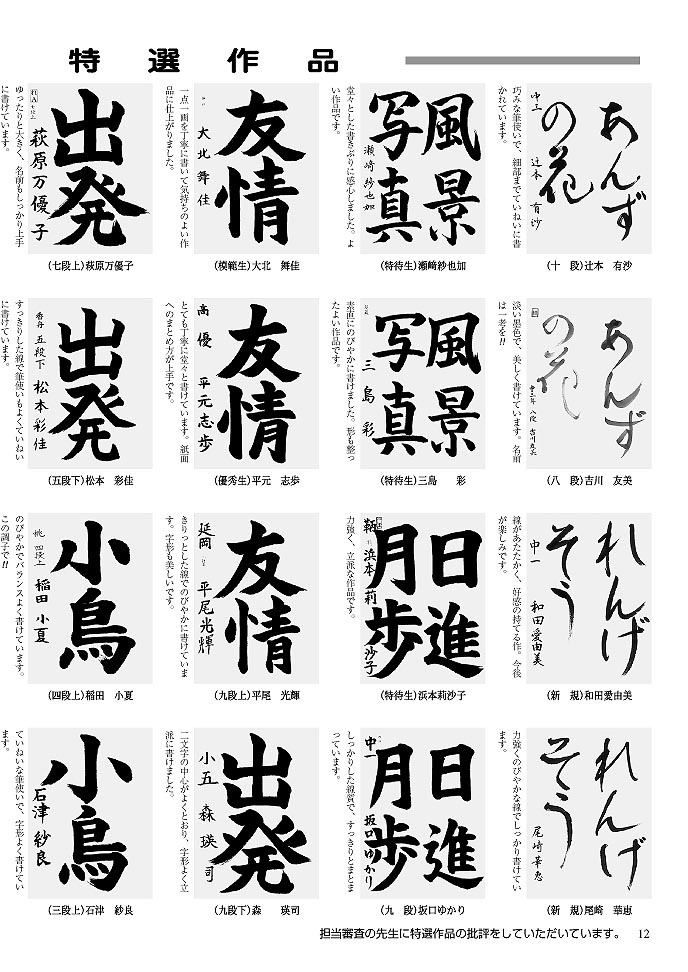 特選作品
あんず
の花
中三 辻本 有沙
巧みな筆使いで、細部までていねいに書
かれています。
(十 段)辻本 有沙
風景
写真
瀬﨑紗也加
堂々とした書きぶりに感心しました。よ
い作品です。
(特待生)瀬﨑紗也加
友情
大北舞佳
一点一画を丁寧に書いて気持ちのよい作
品に仕上がりました。
(模範生)大北 舞佳
出発
七段上
萩原万優子
ゆったりと大きく、名前もしっかり上手
に書けています。
(七段上)萩原万優子
あんず
の花
淡い墨色で、美しく書けています。名前
は一考を!!
(八 段)吉川 友美
風景
写真
三島 彩
素直にのびやかに書けました。形も整っ
たよい作品です。
(特待生)三島 彩
友情
高 優 平元志歩
とても丁寧に堂々と書けています。紙面
へのまとめ方が上手です。
(優秀生)平元 志歩
出発
五段下 松本彩佳
すっきりした線で筆使いもよくていねい
に書けています。
(五段下)松本 彩佳
れんげ
そう
中一 和田愛由美
線があたたかく、好感の持てる作。今後
が楽しみです。
(新 規)和田愛由美
日進
月歩
浜本莉沙子
力強く、立派な作品です。
(特待生)浜本莉沙子
友情
延岡 平尾光輝
きりっとした線でのびやかに書けていま
す。字形も美しいです。
(九段上)平尾 光輝
小鳥
桃 四段上 稲田小夏
のびやかでバランスよく書けています。
この調子で!!
(四段上)稲田 小夏
れんげ
そう
尾崎華恵
力強くのびやかな線でしっかり書けてい
ます。
(新 規)尾崎 華恵
日進
月歩
中一 坂口ゆかり
しっかりした線質で、すっきりとまとま
っています。
(九 段)坂口ゆかり
出発
小五 森 瑛司
二文字の中心がよくとおり、字形よく立
派に書けました。
(九段下)森 瑛司
小鳥
石津紗良
ていねいな筆使いで、字形よく書けてい
ます。
(三段上)石津 紗良
担当審査の先生に特選作品の批評をしていただいています。 12